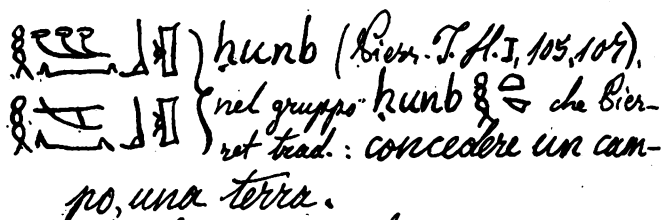 hunb (Pierr. T. H. I, 105, 107),
nel gruppo hunb che Pier-
ret trad.: concedere un cam-
po, una terra.